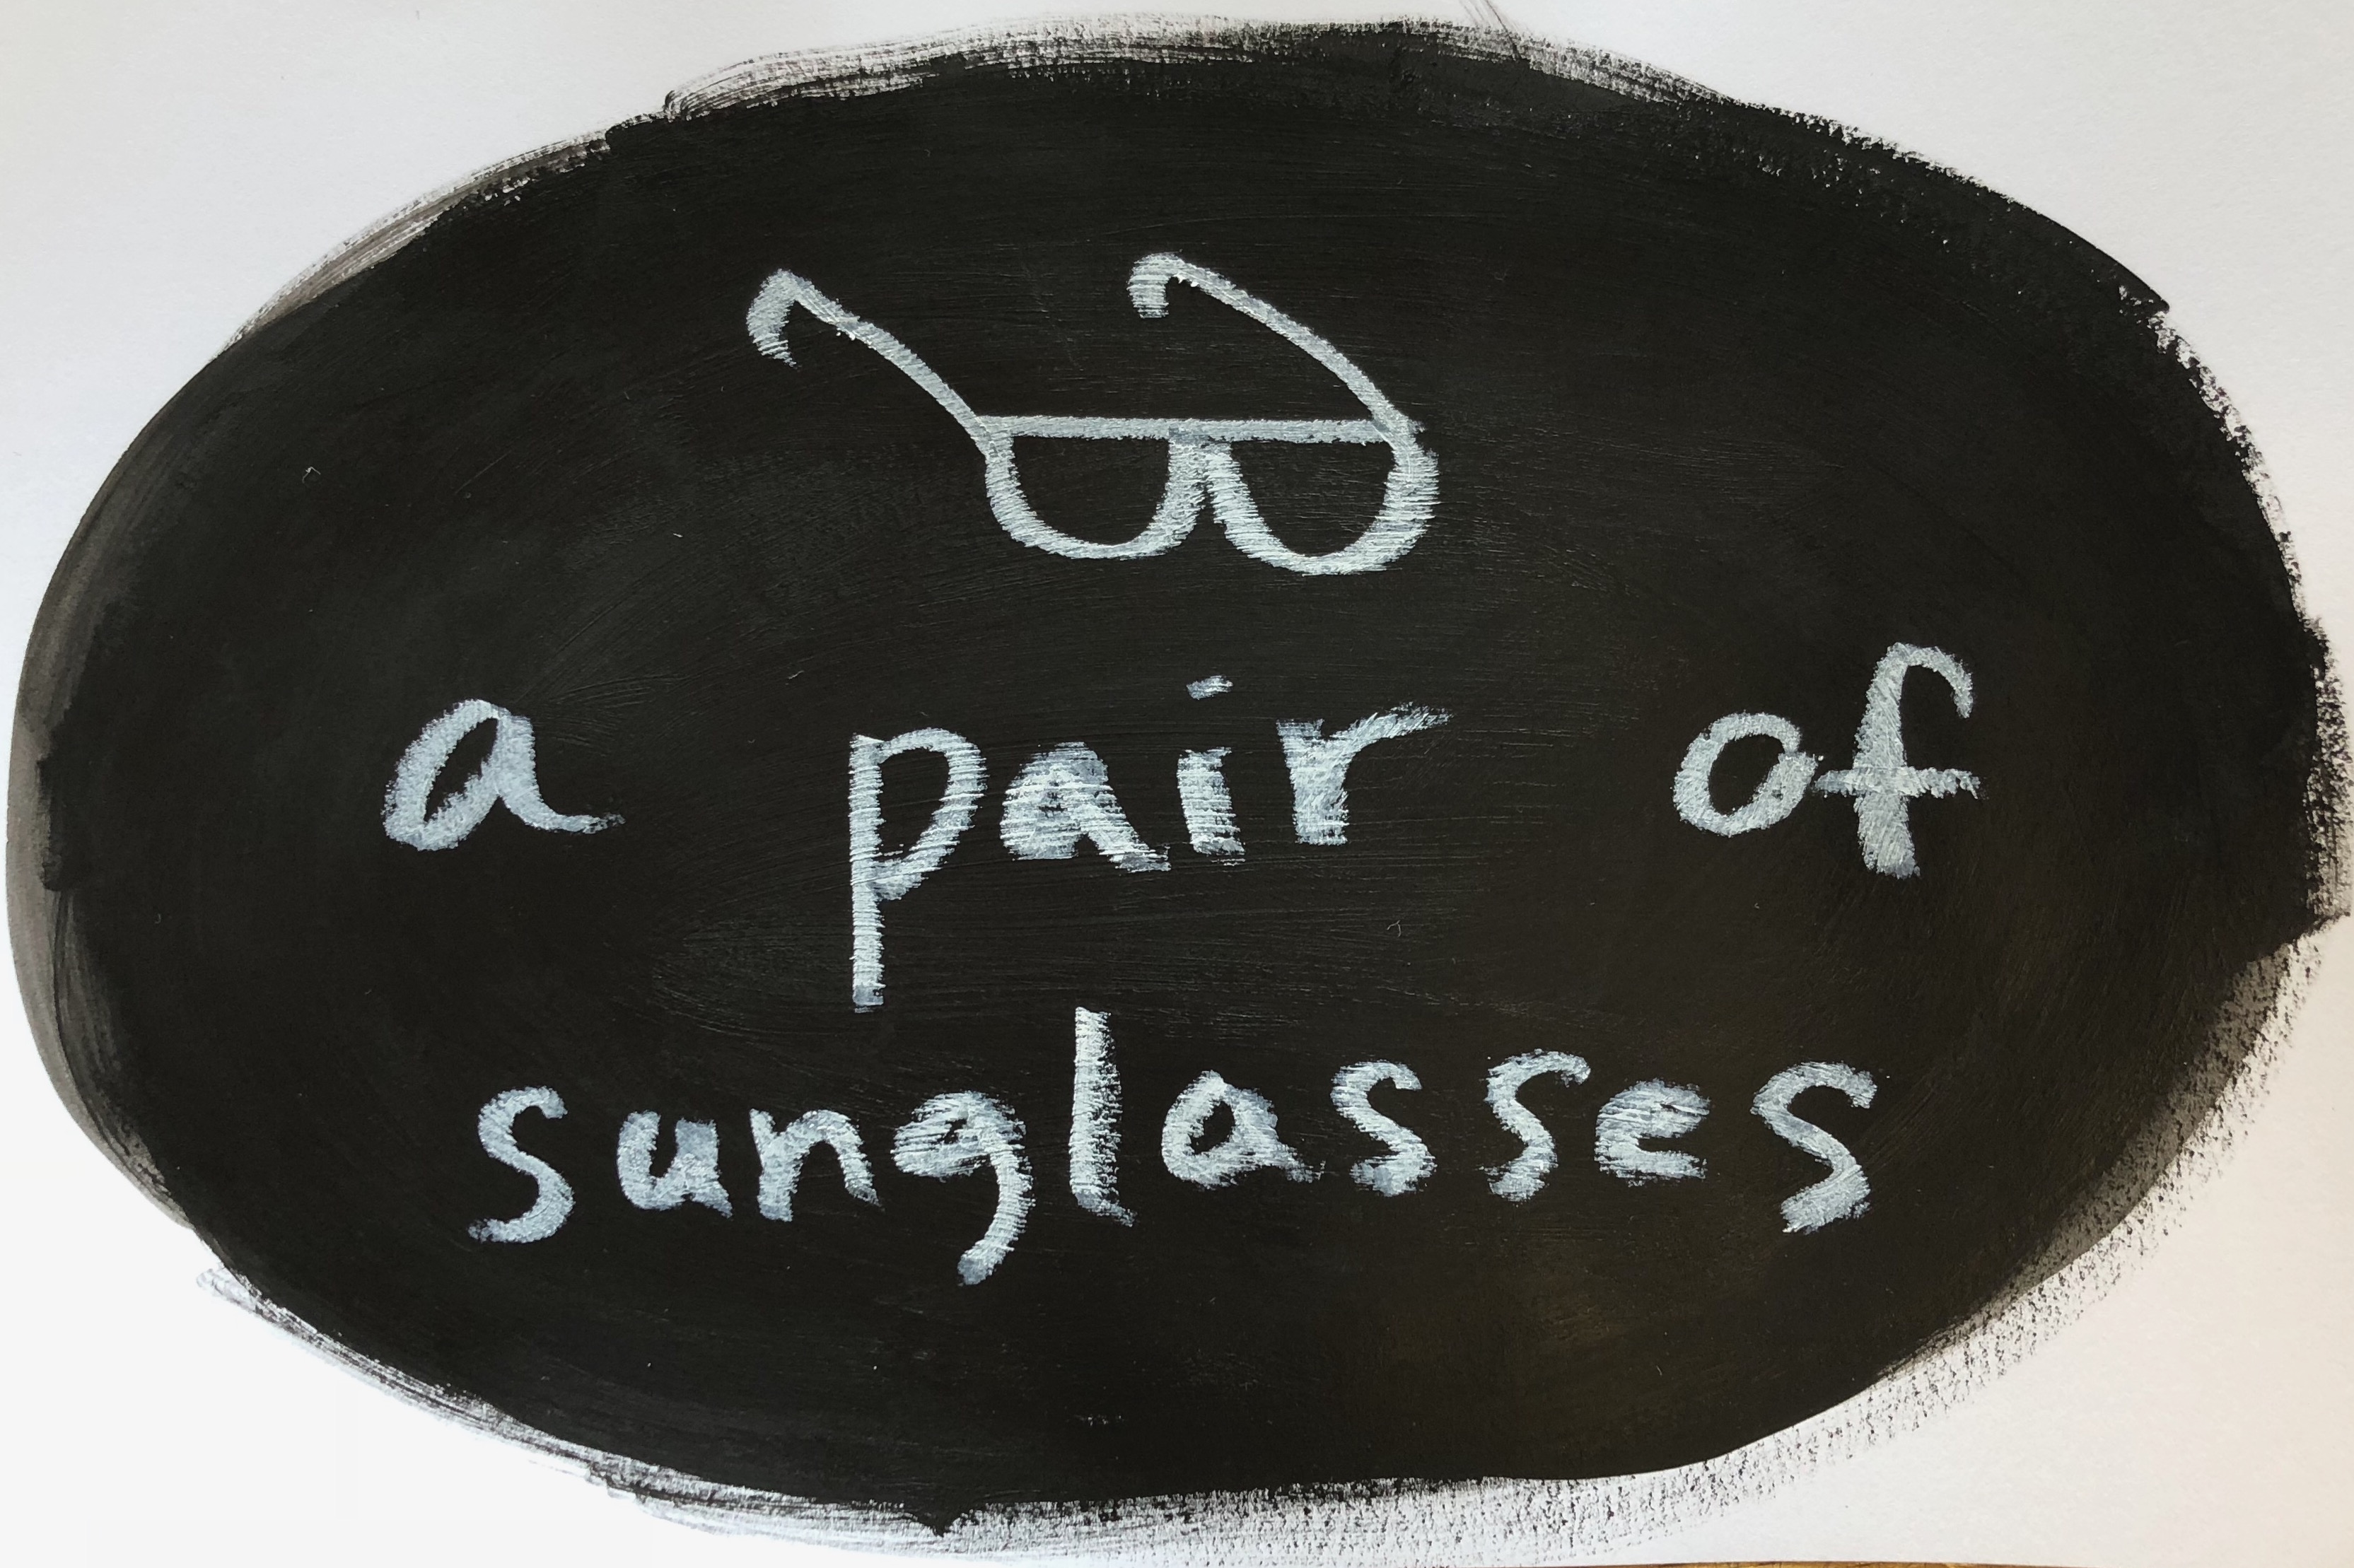 a pair of
sunglasses